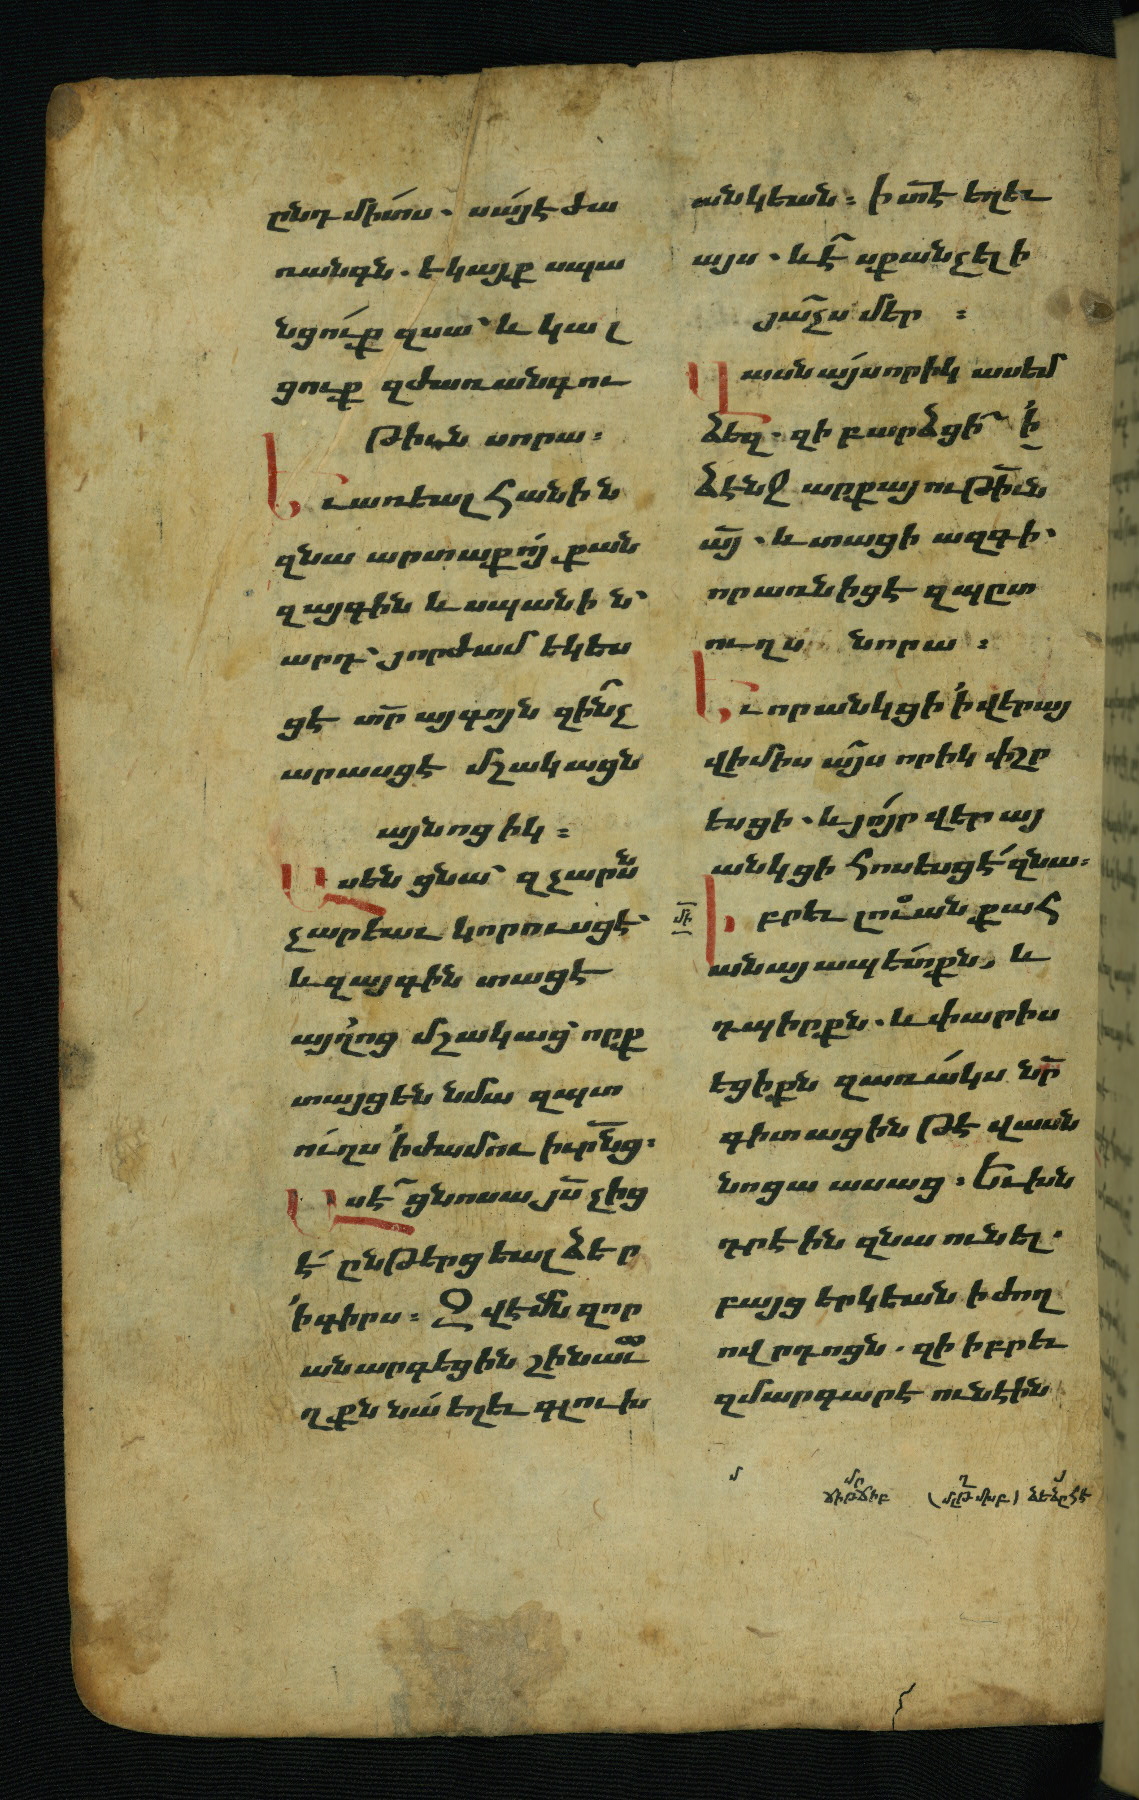 ընդ միտս. սա՛յէ ժա
ռանգն. եկայք սպա
նցո՛ւք զսա՝ և կալ
ցուք զժառանգու
թիւն սորա։
Եւ առեալ հանին
զնա արտաքո՛յ քան
զայգին և սպանին՝
արդ՝ յորժամ եկես
ցէ տ̅ր այգոյն զի̅նչ
արասցէ մշակացն
այնոցիկ։
Ասեն ցնա՝ զչարսն
չարեաւ կորուսցէ՝
և զայգին տացէ
այլոց մշակաց՝ որք
տայցեն նմա զպտ
ո՛ւղս ՚ի ժամու իւր̅նց։
Ասէ՜ ցնոսա յս̅ չից
է՛ ընթերցեալ ձեր
՚ի գիրս։ Զվէմն զոր
անարգեցին շինաւ̅
ղքն նա՛ եղեւ գլուխ
անկեան։ ի տ̅է եղեւ
այս. և է՜ սքանչելի
յա̅չս մեր ։
Վասն ա՛յսորիկ ասեմ
ձեզ. զի բարձցի՜ ՚ի
ձէնջ արքայութի̅ւն
ա̅յ. և տացի ազգի.
որ առնիցէ զպըտ
ուղս նորա ։
Եւ որ անկցի ՚ի վերայ
վիմիս ա̅յսորիկ փշը
եսցի. և յո՛յր վերայ
անկցի հոսեսցէ՛ զնա։
մի
Իբրեւ լուան քահ
անայապե՛տքն, և
դպիրքն. և փարիս
եցիքն զառա՛կս նր̅
գիտացին թէ վասն
նոցա ասաց։ Եւ խն
դրէին զնա ունել.
բայց երկեան ի ժող
ովրդոցն. զի իբրեւ
զմարգարէ ունէին
մ
մր